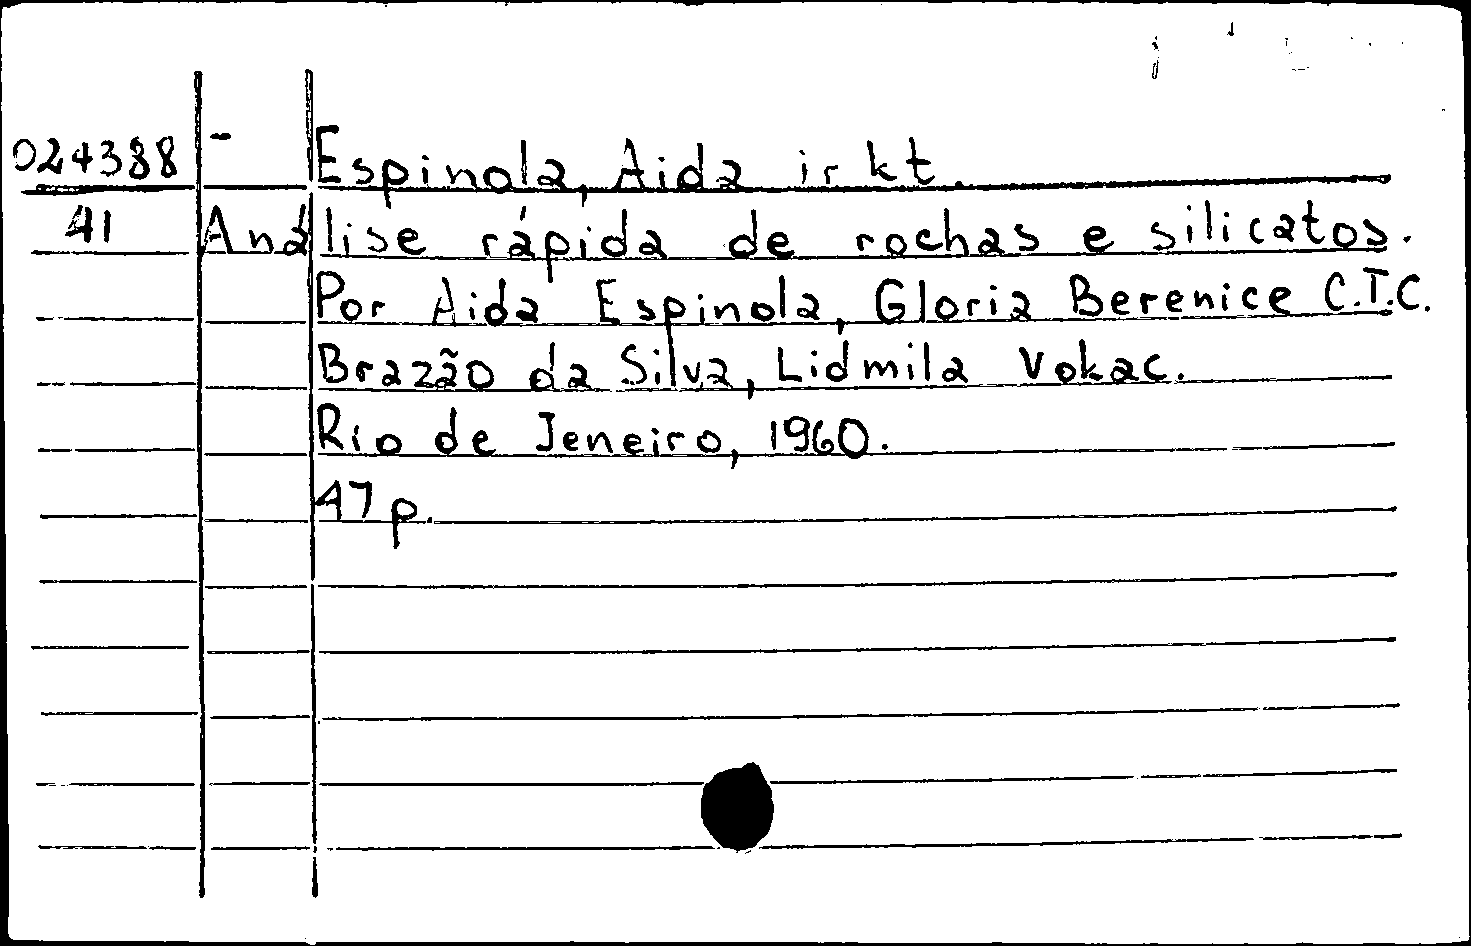 024388 - Espinola, Aida ir kt.
41 Análise rápida de rochas e silicatos.
Por Aida Espinola, Gloria Berenice C.T.C.
Brazão da Silva, Lidmila Vokac.
Rio de Jeneiro, 1960.
47 p.